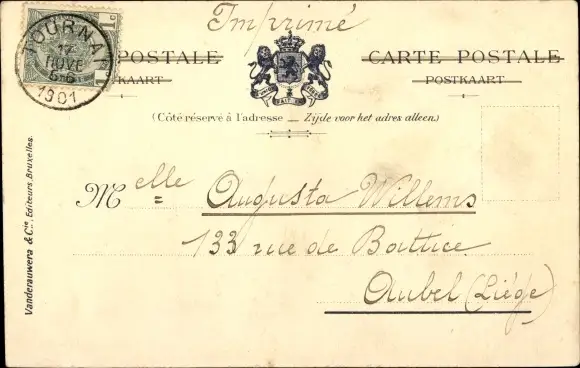 Imprimé
1 C
TOURNAI
17
NOVE
5-6
1901
POSTALE
KAART
CARTE POSTALE
POSTKAART
(Côté réservé à l'adresse _ Zijde voor het adres alleen.)
Melle Augusta Willems
133 rue de Battice
Aubel (Liége)
Vanderauwera & Cie. Editeurs. Bruxelles.